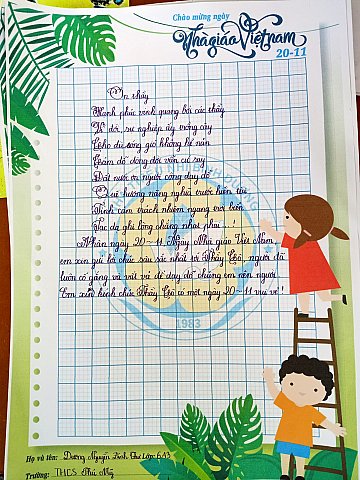 Chào mừng ngày
Nhà giáo Việt nam
20-11
Ơn thầy
Hạnh phúc vinh quang bởi các thầy
Vì đời, sự nghiệp ấy trồng cây
Cho dù sóng gió không hề nản
Chèo đò dòng đời vẫn cứ say
Đất nước ơn người công dạy dỗ
Quê hương nặng nghĩa trước hiền tài
Tình cảm trách nhiệm ngang trời biển
Tạc dạ ghi lòng chẳng nhạt phai...!
Nhân ngày 20-11 Ngày Nhà giáo Việt Nam,
em xin gửi lời chúc sâu sắc nhất tới Thầy Cô, người đã
luôn cố gắng và vất vả để dạy dỗ chúng em nên người.
Em xin kính chúc Thầy Cô có một ngày 20-11 vui vẻ!
1983
Họ và tên: Dương Nguyễn Thư Lớp: 6A3
Trường: THCS Phú Mỹ